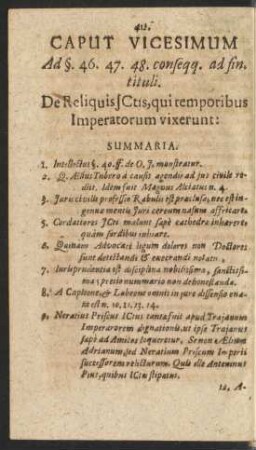 412.
CAPUT VICESIMUM
Ad §. 46. 47. 48. conseqq. ad fin.
tituli.
De Reliquis JCtis, qui temporibus
Imperatorum vixerunt:
SUMMARIA.
1. Intellectus §. 40. ff. de O. J. monstratur.
2. Q. Ælius Tubero à causis agendis ad jus civile re-
diit. Idem fuit Magnus n. 4.
3. Juris civilis professio Rabulis est præclusa, nec est in-
genua mentis Juri cereum nasum affrictare.
5. Cordatiores JCti malunt sæpè cathedræ inhærere
quàm sordibus inhiare.
6. Quinam Advocati legum dolores non Doctores
sint detestandi & execrandi notatu.
7. Jurisprudentia est disciplina nobilissima, sanctissima
pretio nummario non dehonestanda.
8. A Capitone & Labeone omnis in jure dissensio ema-
navit n. 10, 11, 13. 14.
9. Neratius Priscus JCtus tanta fuit apud Trajanum
Imperatorem dignationis, ut ipse Trajanus
sæpè ad Amicos loqueretur, Se non Ælium
Adrianum, sed Neratium Priscum Imperii
successorem relicturum. Quis ille Antoninus
Pius, quibus JCtus stipatus.
12. A-